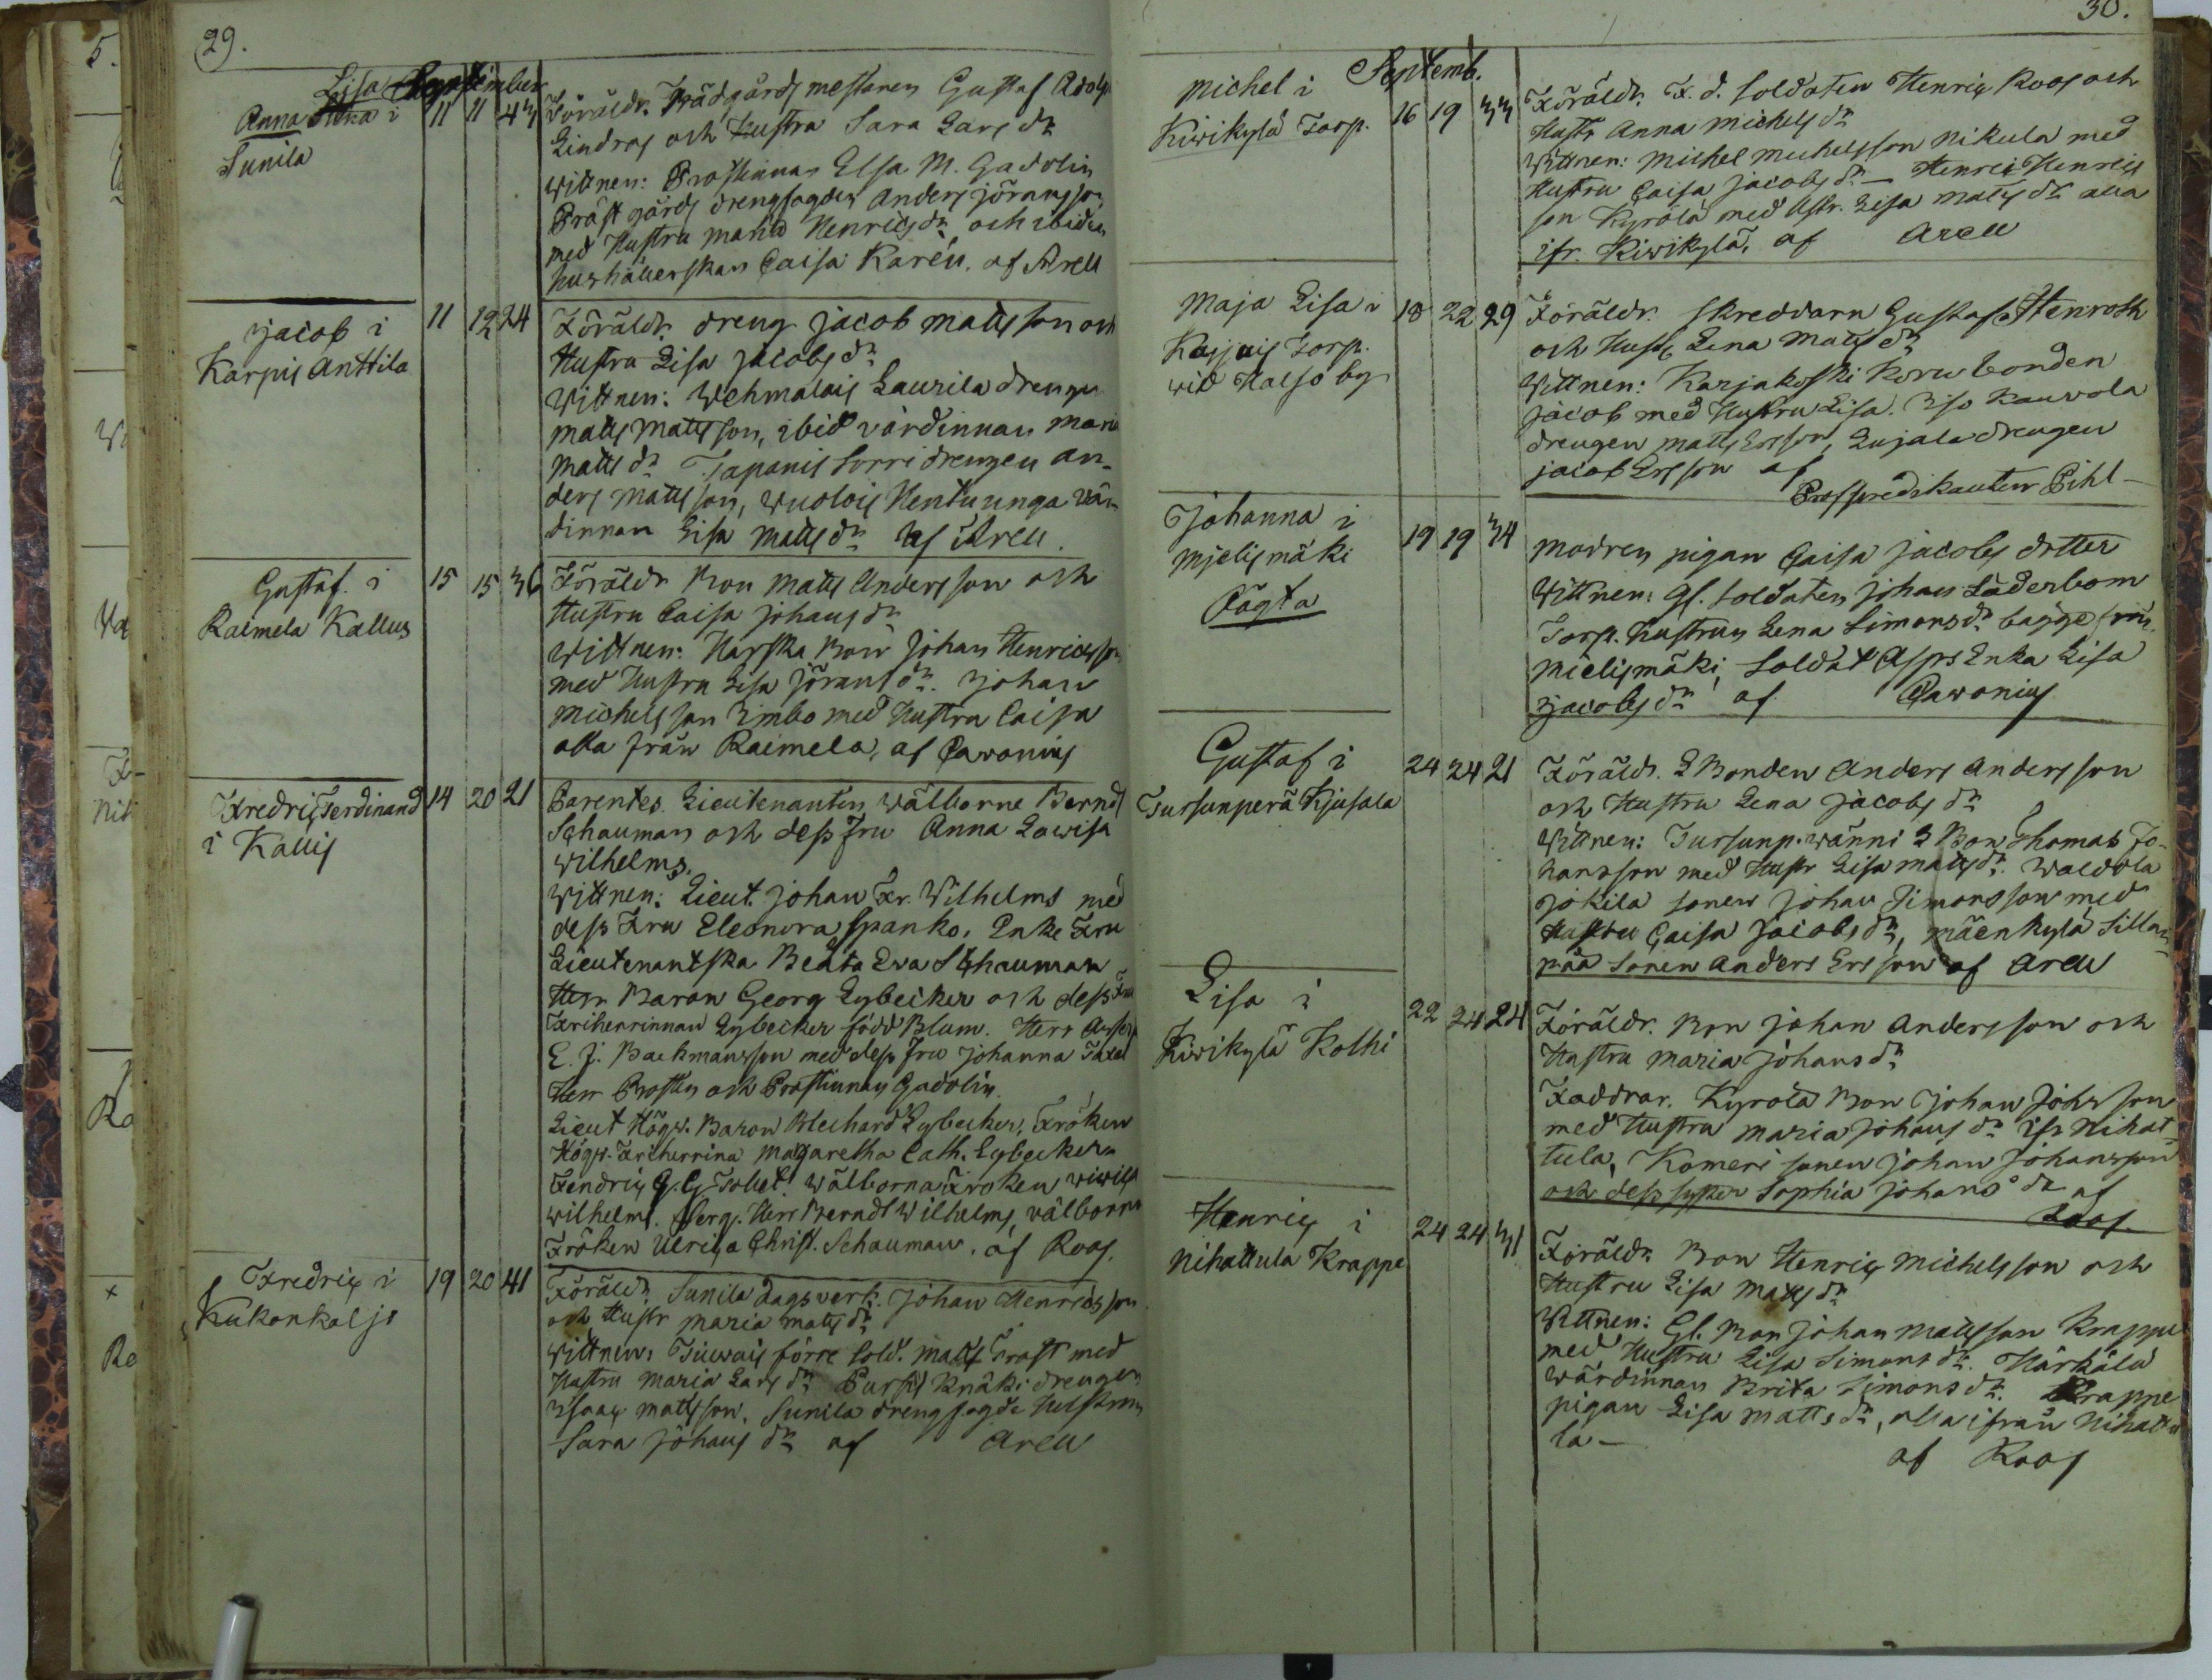 29.
Lisa September
Anna Stina i 11 11 43
Sunila
Föräldr. Trädgårdsmestaren Gustaf Adolf
Lindros och Hustru Sara Larsdr
Wittnen: Prostinnan Elsa M. Gadolin
Prästgårds drengfogden Anders Jöransson
med Hustru Maria Henricsdr och ibidem
hushållerskan Caisa Karén. af Arell
Jacob i 11 12 24
Karpis Anttila
Föräldr. dreng Jacob Matts son och
Hustru Lisa Jacobs dr
Wittnen: Wehmalais Laurila drengen
Matts Matts son, ibid värdinnan Maria
Matts dr Tapanis Sorri drengen An-
ders Matts son, Wuolois Hentuunga vär-
dinnan Lisa Matts dr af Arell.
Gustaf i 15 15 36
Raimela Kallus
Föräldr Bon Matts Anders son och
Hustru Caisa Johans dr
Wittnen: Harska Bon Johan Henrics son
med Hustru Lisa Jörans dr. Johan
Michels son Simbo med Hustru Caisa
alla från Raimela, af Pavonius
Fredric Ferdinand 14 20 21
i Kallis
Parentes. Lieutenanten Wälborne Bernd
Schauman och dess Fru Anna Lovisa
Wilhelms.
Wittnen: Lieut. Johan Fr. Wilhelms med
dess Fru Eleonora Spanko. Enke Fru
Lieutenantska Beata Eva Schauman
Herr Baron Georg Lybecker och dess Fru
Friherrinnan Lybecker född Blum. Herr
E. J. Backmansson med dess Fru Johanna
Herr Prosten och Prostinnan Gadolin.
Lieut Högw. Baron Blechard Lybecker, Fröken
Högw. Friherrina Magaretha Cath. Lybecker
Fendric G. G. Tobel. Wälborna Fröken
Wilhelms. Serg. Herr Berndt Wilhelms, välborna
Fröken Ulrica Christ. Schauman. af Roos.
Fredric i 19 20 41
Kukonkoljo
Föräldr Sunila dagsverk. Johan Henrics son
och Hustr Maria Matts dr
Wittnen: förre Sold. Matts Trast med
Hustru Maria Lars dr Pursis Knäki drengen
Isaac Matts son. Sunila drengfogde Hustrun
Sara Johans dr af Arell
30.
Septemb.
Michel i 16 19 33
Kiwikylä Torp.
Föräldr. F. d. Soldaten Henric Roos och
Hustr Anna Michels dr
Wittnen: Michel Michelsson Nikula med
Hustru Caisa Jacobs dr — Henric Henrics
son Kyrölä med Hstr. Lisa Matts dr alla
ifr. Kiwikylä, af Arell
Maja Lisa i 18 22 29
Torp.
wid Halso by
Föräldr. Skreddarn Gustaf Stenroth
och Hustr Lena Matts dr
Wittnen: Karjakoski Koru bonden
Jacob med Hustru Lisa. Iso Kauvola
drengen Matts Ersson, Lujala drengen
Jacob Ersson af
Prospredikanten Pihl —
Johanna i 19 19 34
Mjelismäki
Oägta
Modren pigan Caisa Jacobs dotter
Wittnen: Gl. Soldaten Johan Söderbom
Torp. Hustrun Lena Simonsdr bägge från
Mielismäki, Soldat Asps Enka Lisa
Jacobs dr af Pavonius
Gustaf i 24 24 21
Tursunperä Kjusala
Föräldr. L Bonden Anders Anders son
och Hustru Lena Jacobs dr
Wittnen: Tursunp. Wänni L Bon Thomas Jo-
hansson med Hustr Lisa Matts dr. Waldola
Jokila sonen Johan Simonsson med
Hustru Caisa Jacobs dr, Mäenkylä Sillan-
pää sonen Anders Ersson af Arell
Lisa i 22 24 24
Kiwikylä Kolhi
Föräldr. Bon Johan Anders son och
Hustru Maria Johans dr
Faddrar. Kyrölä Bon Johan Johs son
med Hustru Maria Johans dr ifr Nihat-
tula, Komeri sonen Johan Johansson
och dess syster Sophia Johans dr af
Roos.
Henric i 24 24 31
Nihattula Krappe
Föräldr Bon Henric Michels son och
Hustru Lisa Matts dr
Wittnen: Gl. Bon Johan Mattsson Krappe
med Hustru Lisa Simons dr. Härkälä
Wärdinnan Brita Simons dr. Krappe
pigan Lisa Matts dr, alla ifrån Nihattu
la —
af Roos